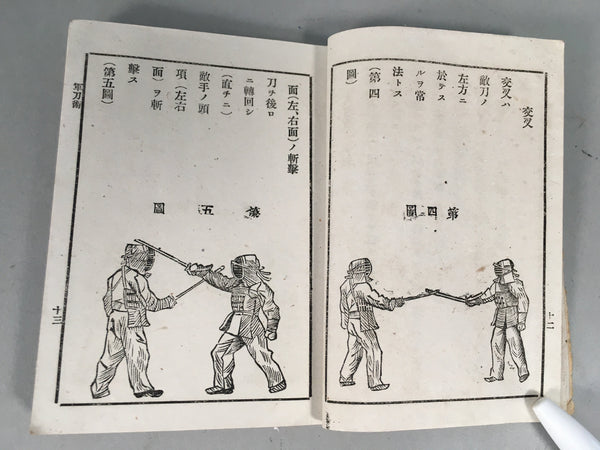 交叉
交叉ハ
敵刀ノ
左方ニ
於テス
ルヲ常
法トス
(第四
圖)
第四圖
十二
面(左、右面)ノ斬擊
刀ヲ後ロ
ニ轉回シ
(直チニ)
敵手ノ頭
項(左右
面)ヲ斬
擊ス
(第五圖)
第五圖
軍刀術
十三